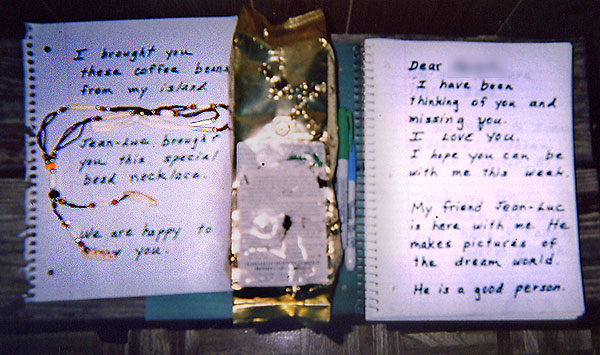 I brought you
these coffee beans
from my island
Jean-Luc brought
you this special
bead necklace.
We are happy to
you.
Dear
I have been
thinking of you and
missing you.
I LOVE YOU.
I hope you can be
with me this week.
My friend Jean-Luc
is here with me. He
makes pictures of
the dream world.
He is a good person.